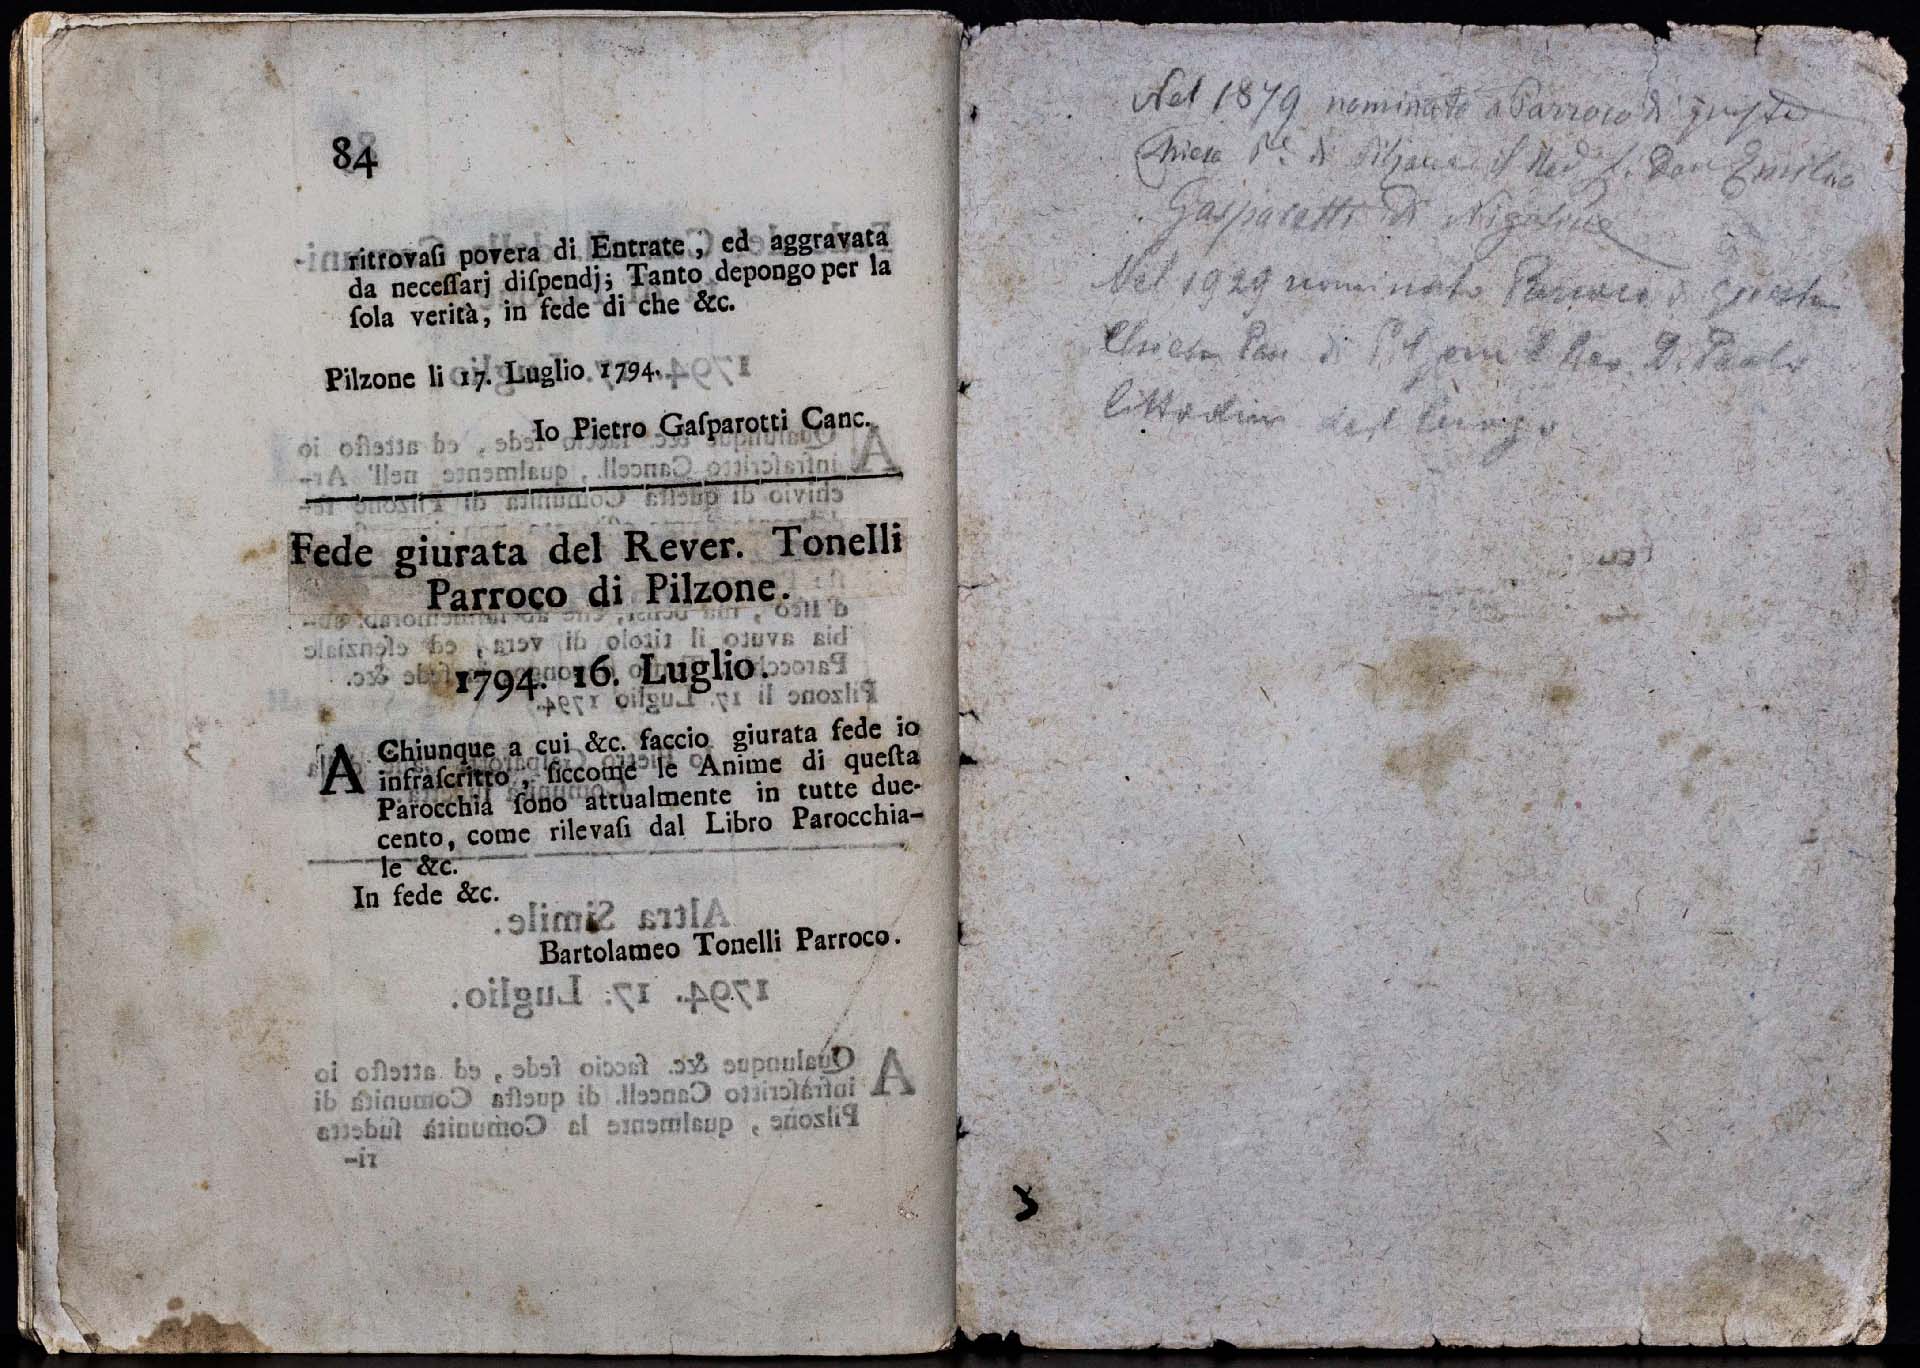 84
ritrovaſi povera di Entrate, ed aggravata
da neceſſarj diſpendj; Tanto depongo per la
ſola verità, in fede di che &c.
Pilzone li 17. Luglio 1794.
Io Pietro Gaſparotti Canc.
Fede giurata del Rever. Tonelli
Parroco di Pilzone.
1794. 16. Luglio.
A Chiunque a cui &c. faccio giurata fede io
infraſcritto, ſiccome le Anime di queſta
Parocchia ſono attualmente in tutte due-
cento, come rilevaſi dal Libro Parocchia-
le &c.
In fede &c.
Bartolameo Tonelli Parroco.
Nel 1879 nominato a Parroco di questa
Chiesa di il Don Emilio
Gasparotti di
Nel 1929 nominato Parroco di questa
Chiesa Par. di Pilzone il Rev. D. Paolo
Cittadini del